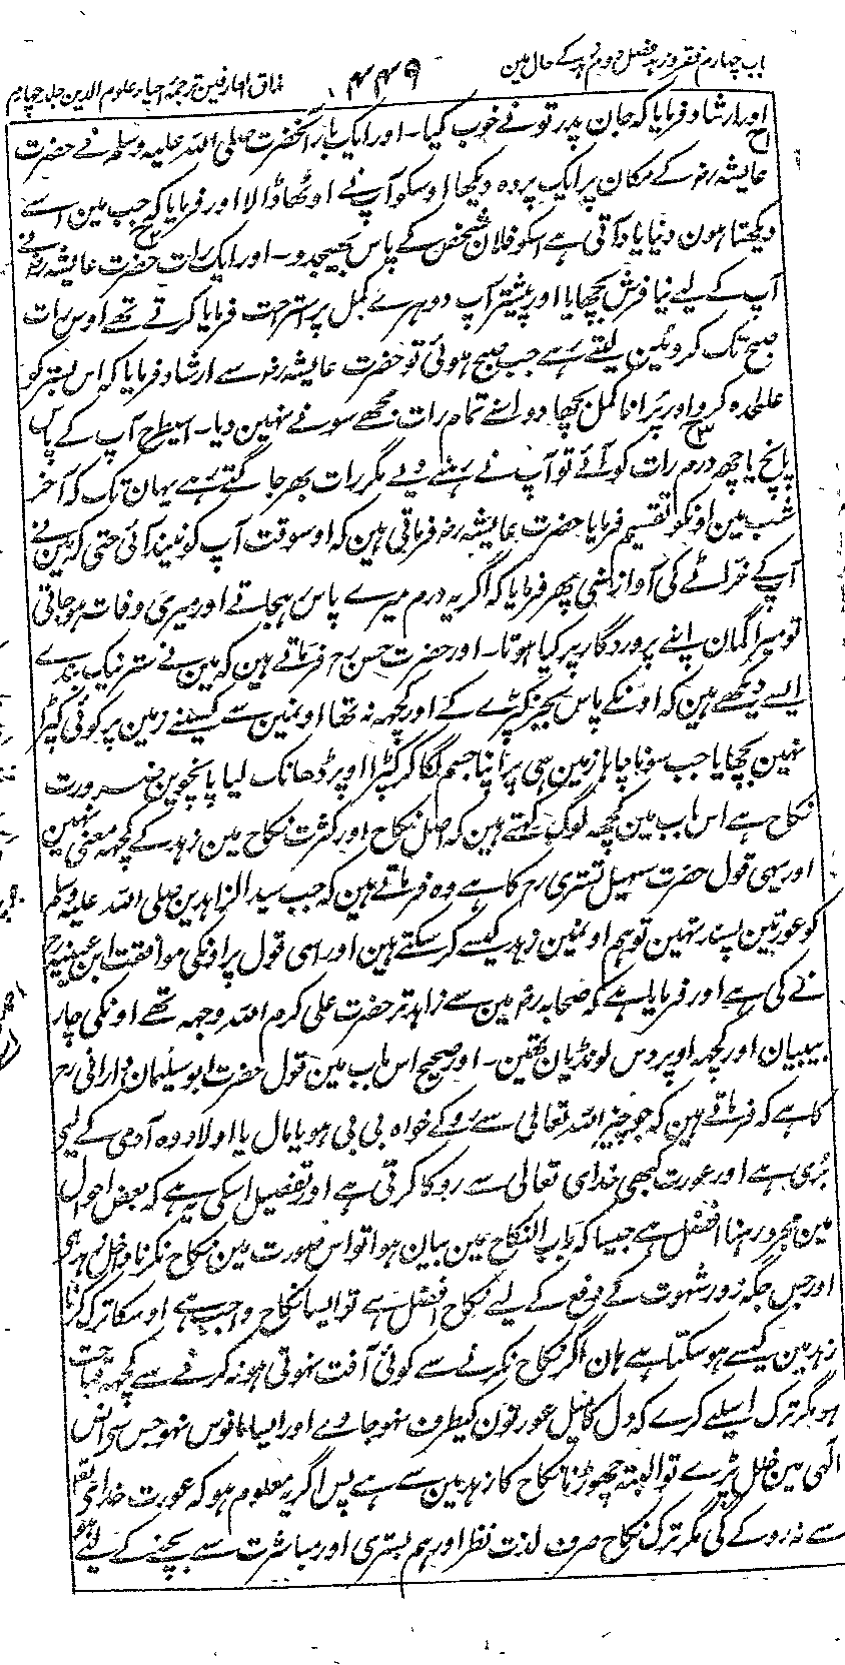 باب چہارم فقر و زہد فصل دوم زہد کے حال مین
۴۴۹
مذاق العارفین ترجمۂ احیاء علوم الدین جلد چہارم
اور ارشاد فرمایا کہ جان پدر تو نے خوب کیا۔ اور ایک بار آنحضرت صلی اللہ علیہ وسلم نے حضرت
عایشہ رضہ کے مکان پر ایک پردہ دیکھا اوسکو آپ نے اوٹھا ڈالا اور فرمایا کہ جب مین اسے
دیکھتا ہون دنیا یاد آتی ہے اسکو فلان شخص کے پاس بھیجدو۔ اور ایک رات حضرت عایشہ رضہ نے
آپ کے لیے نیا فرش بچھایا اور پیشتر آپ دوہرے کمل پر استراحت فرمایا کرتے تھے اوس رات
صبح تک کروٹین لیتے رہے جب صبح ہوئی تو حضرت عایشہ رضہ سے ارشاد فرمایا کہ اس بستر کو
علٰحدہ کرو اور پرانا کمل بچھا دو اسنے تمام رات مجھے سونے نہین دیا۔ اسیطرح آپ کے پاس
پانچ یا چھ درم رات کو آئے تو آپ نے رہنے دیے مگر رات بھر جاگتے رہے یہان تک کہ آخر
شب مین اونکو تقسیم فرمایا حضرت عایشہ رضہ فرماتی ہین کہ اوسوقت آپ کو نیند آئی حتی کہ مین نے
آپ کے خراٹے کی آواز سُنی پھر فرمایا کہ اگر یہ درم میرے پاس رہجاتے اور میری وفات ہو جاتی
تو میرا گمان اپنے پروردگار پر کیا ہوتا۔ اور حضرت حسن رح فرماتے ہین کہ مین نے ستر نیک بندے
ایسے دیکھے ہین کہ اونکے پاس بجز کپڑے کے اور کچھ نہ تھا اونمین سے کسینے زمین پر کوئی کپڑا
نہین بچھایا جب سونا چاہا زمین ہی پر اپنا جسم لگا کر کپڑا اوپر ڈھانک لیا پانچوین ضرورت
نکاح ہے اس باب مین کچھ لوگ کہتے ہین کہ اصل نکاح اور کثرت نکاح مین زہد کے کچھ معنی نہین
اور یہی قول حضرت سہیل تستری رح کا ہے وہ فرماتے ہین کہ جب سید الزاہدین صلی اللہ علیہ وسلم
کو عورتین پسند تھین تو ہم اونمین زہد کیسے کر سکتے ہین اور اسی قول پر اونکی موافقت ابن عیینہ رح
نے کی ہے اور فرمایا ہے کہ صحابہ رضہ مین سے زاہد تر حضرت علی کرم اللہ وجہہ تھے اونکی چار
بیبیان اور کچھ اوپر دس لونڈیان تھین۔ اور صحیح اس باب مین قول حضرت ابو سلیمان دارانی رح
کا ہے کہ فرماتے ہین کہ جو چیز اللہ تعالی سے روکے خواہ بی بی ہو یا مال یا اولاد وہ آدمی کے لیے
بُری ہے اور عورت کبھی خدای تعالی سے روکا کرتی ہے اور تفصیل اسکی یہ ہے کہ بعض احوال
مین مجرد رہنا افضل ہے جیسا کہ باب النکاح مین بیان ہوا تو اس صورت مین نکاح نکرنا داخل زہد ہے
اور جس جگہ زور شہوت کے دفع کے لیے نکاح افضل ہے تو ایسا نکاح واجب ہے اوسکا ترک کرنا
زہد مین کیسے ہو سکتا ہے ہان اگر نکاح نکرنے سے کوئی آفت نہوتی ہو نہ کرنے سے کچھ قباحت
ہو مگر ترک اسلیے کرے کہ دل کا میل عورتون کیطرف نہو جاوے اور ایسا مانوس نہو جس سے انس
الٰہی مین خلل پڑے تو البتہ چھوڑنا نکاح کا زہد مین سے ہے پس اگر یہ معلوم ہو کہ عورت خدای تعالی
سے نہ روکے گی مگر ترک نکاح صرف لذت نظر اور ہم بستری اور مباشرت سے بچنے کے لیے ہو